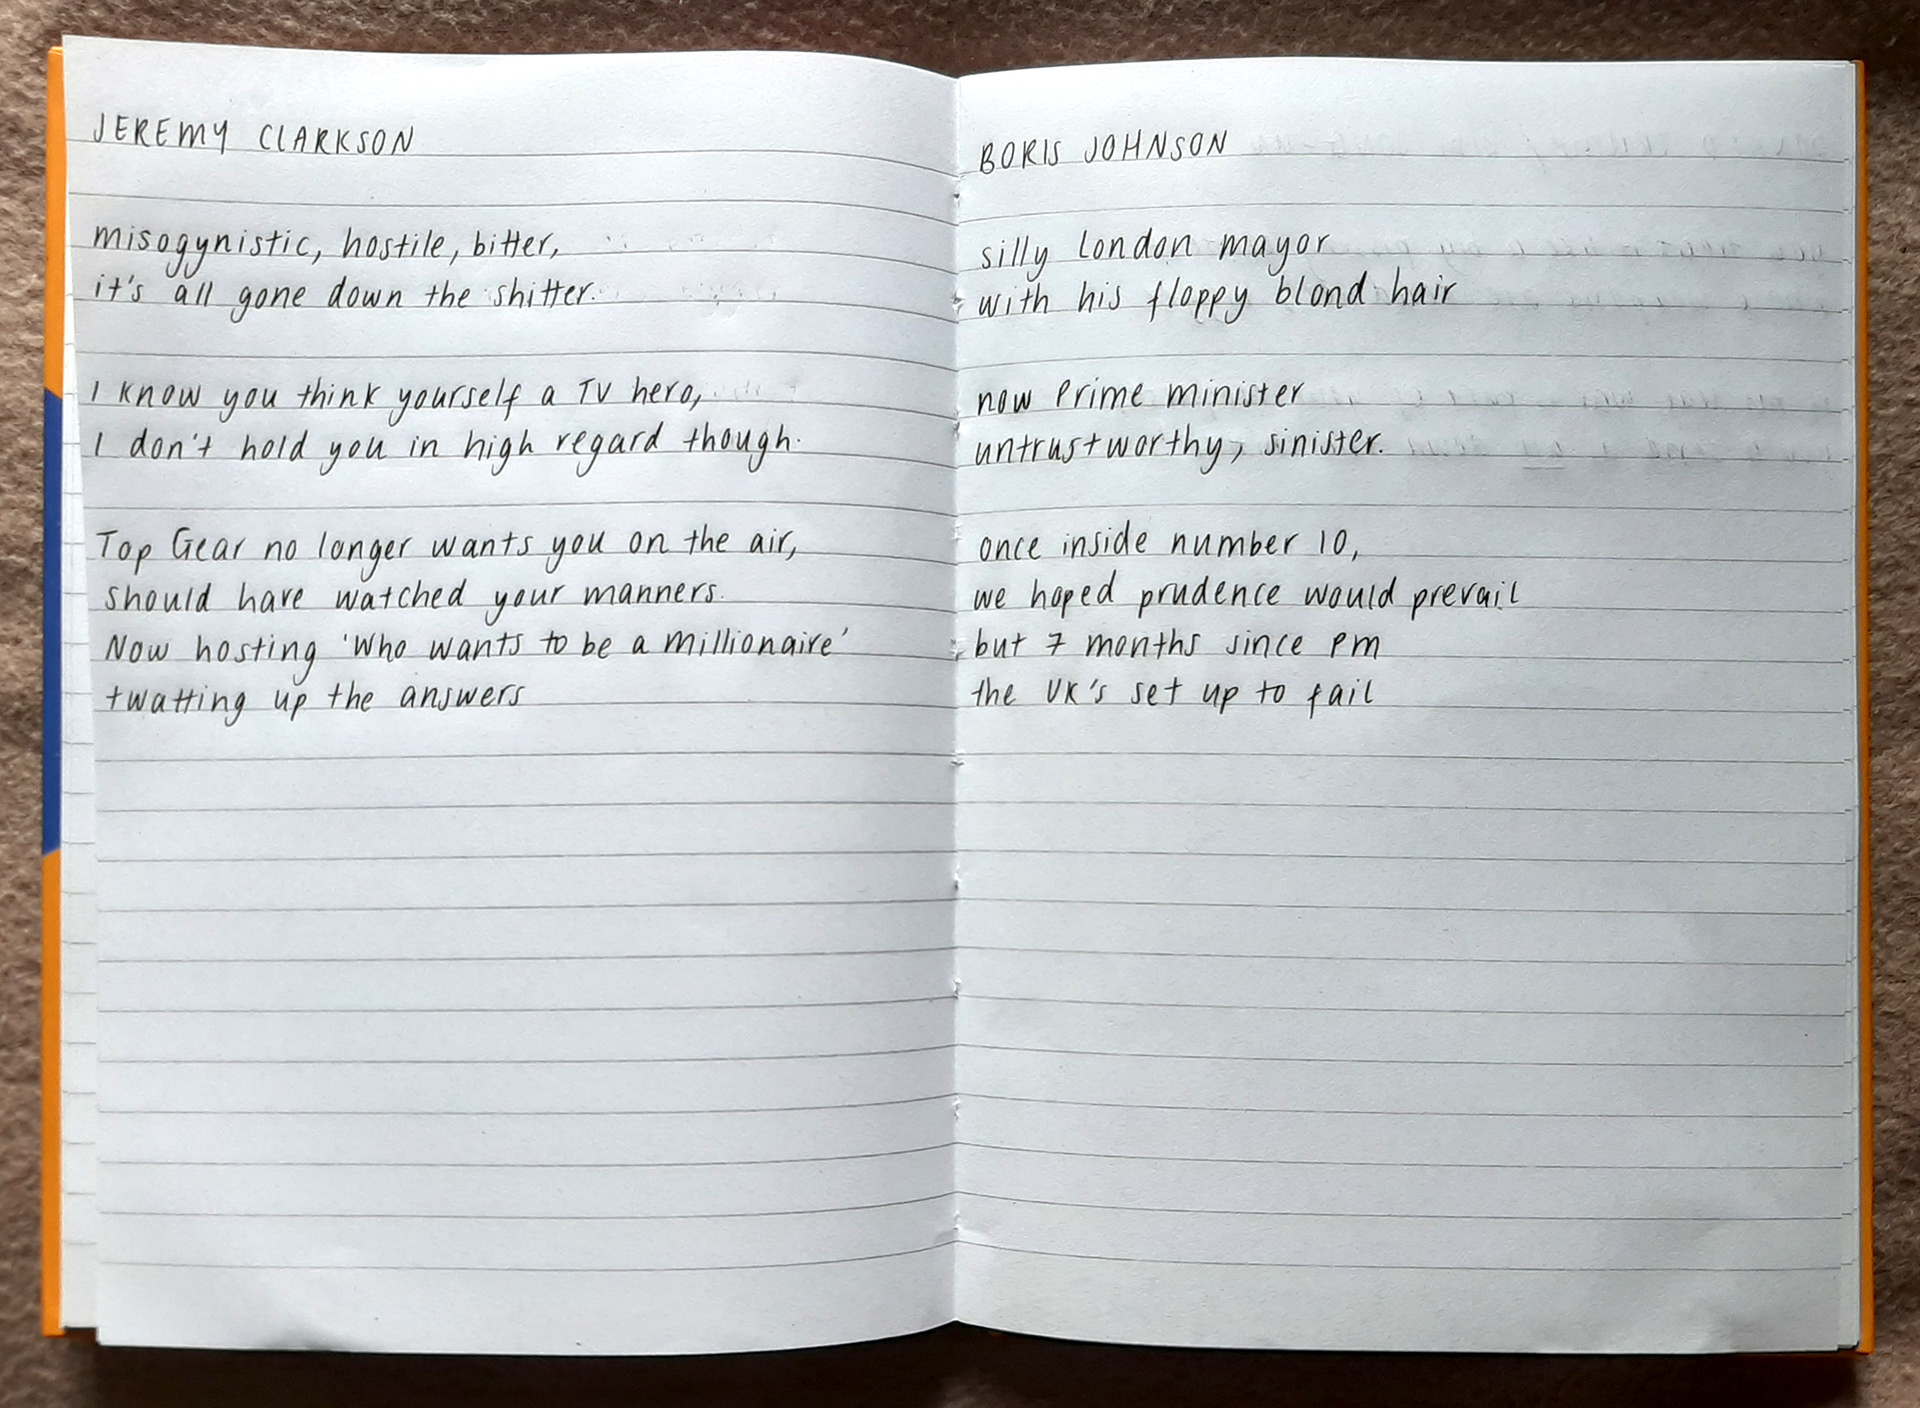 JEREMY CLARKSON
misogynistic, hostile, bitter,
it's all gone down the shitter.
I know you think yourself a TV hero,
I don't hold you in high regard though.
Top Gear no longer wants you on the air,
should have watched your manners.
Now hosting 'Who wants to be a millionaire'
twatting up the answers
BORIS JOHNSON
silly London mayor
with his floppy blond hair
now Prime minister
untrustworthy, sinister.
once inside number 10,
we hoped prudence would prevail
but 7 months since PM
the UK's set up to fail